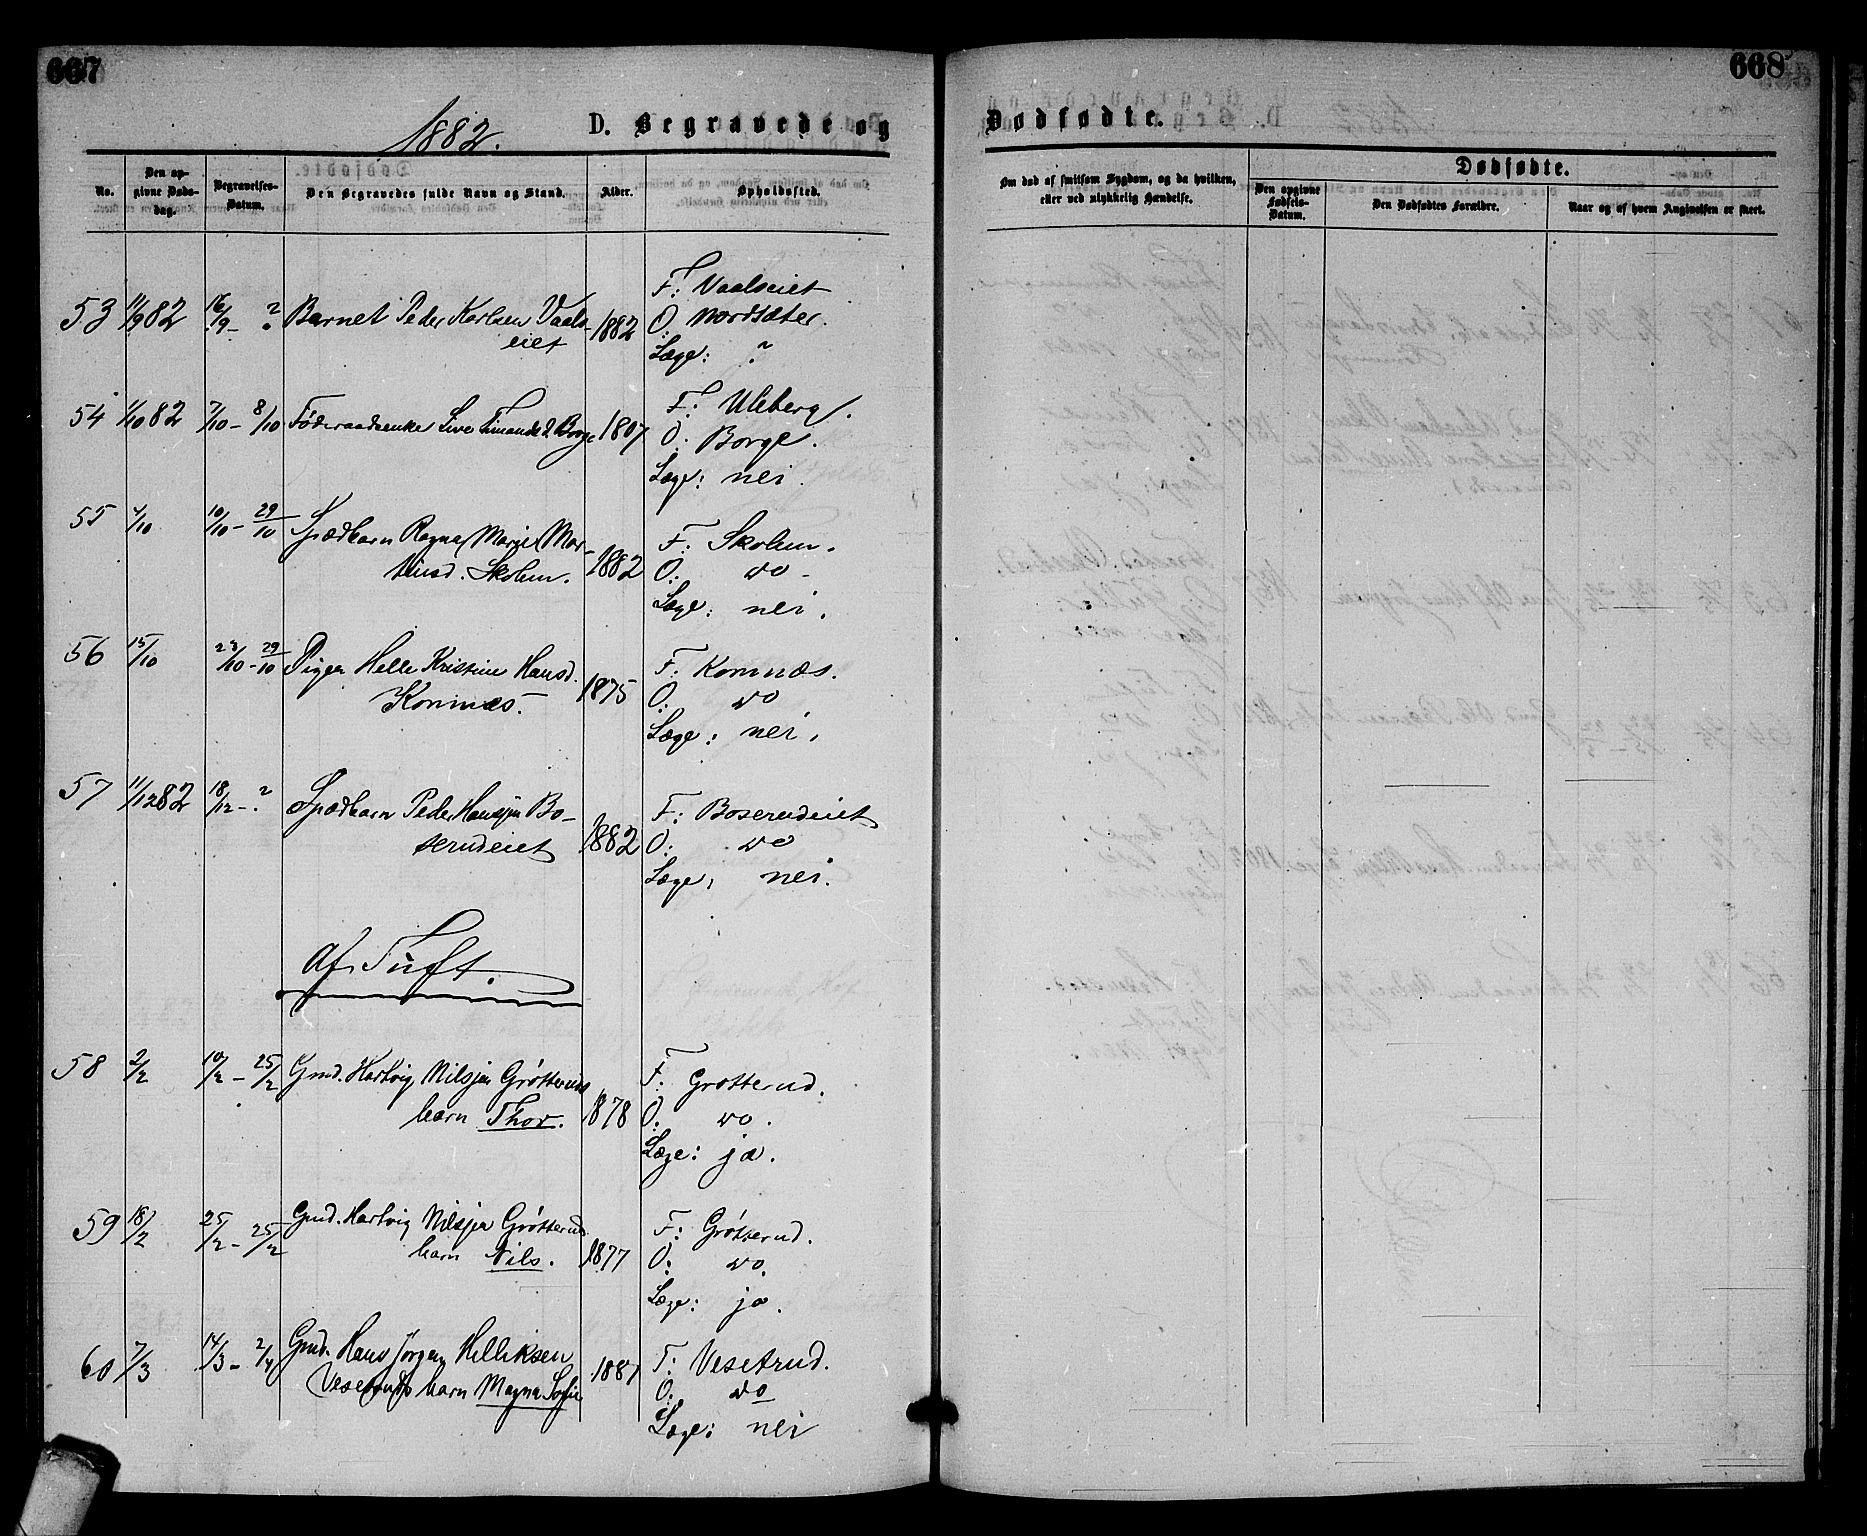 667
1882.
D. Begravede og
No.
Den op-
givne Døds-
dag.
Begravelses-
Datum.
Den Begravedes fulde Navn og Stand.
Alder.
Opholdssted.
53 11/9 82 16/9 - ? Barnet Peder Karlsen Vaals-
eiet
1882
F: Vaalseiet
O: Nordsæter.
Læge: ?
54 1/10 82 7/10 - 8/10 Føderaadsenke Live Simensd. Borge 1807
F: Uleberg.
O: Borge.
Læge: nei.
55 4/10 10/10 - 29/10 Spædbarn Ragna Marie Mar-
tinsd. Skolem.
1882
F: Skolem.
O: do -
Læge: nei.
56 15/10 23/10 - 29/10 Pigen Helle Kristine Hansd.
Komnæs.
1875
F: Komnæs.
O: do
Læge: nei.
57 11/12 82 18/12 - ? Spædbarn Peder Hansen Bo-
serudeiet
1882
F: Boserudeiet
O: do
Læge: nei.
Af Tuft.
58 2/2 10/2 - 25/2 Gmd. Hartvig Nilsen Grøtteruds
barn Thor.
1878
F: Grøtterud.
O: do.
Læge: ja.
59 18/2 25/2 - 25/2 Gmd. Hartvig Nilsen Grøtteruds
barn Nils.
1877
F: Grøtterud.
O: do.
Læge: ja.
60 7/3 14/3 - 2/4 Gmd. Hans Jørgen Helliksen
Vesetruds barn Magna Sofie
1881
F: Vesetrud.
O: do
Læge: nei
668
Dødfødte.
Om død af smitsom Sygdom, og da hvilken,
eller ved ulykkelig Hændelse.
Dødfødte.
Den opgivne
Fødsels-
Datum.
Den Dødfødtes Forældre.
Naar og af hvem Angivelsen er skeet.